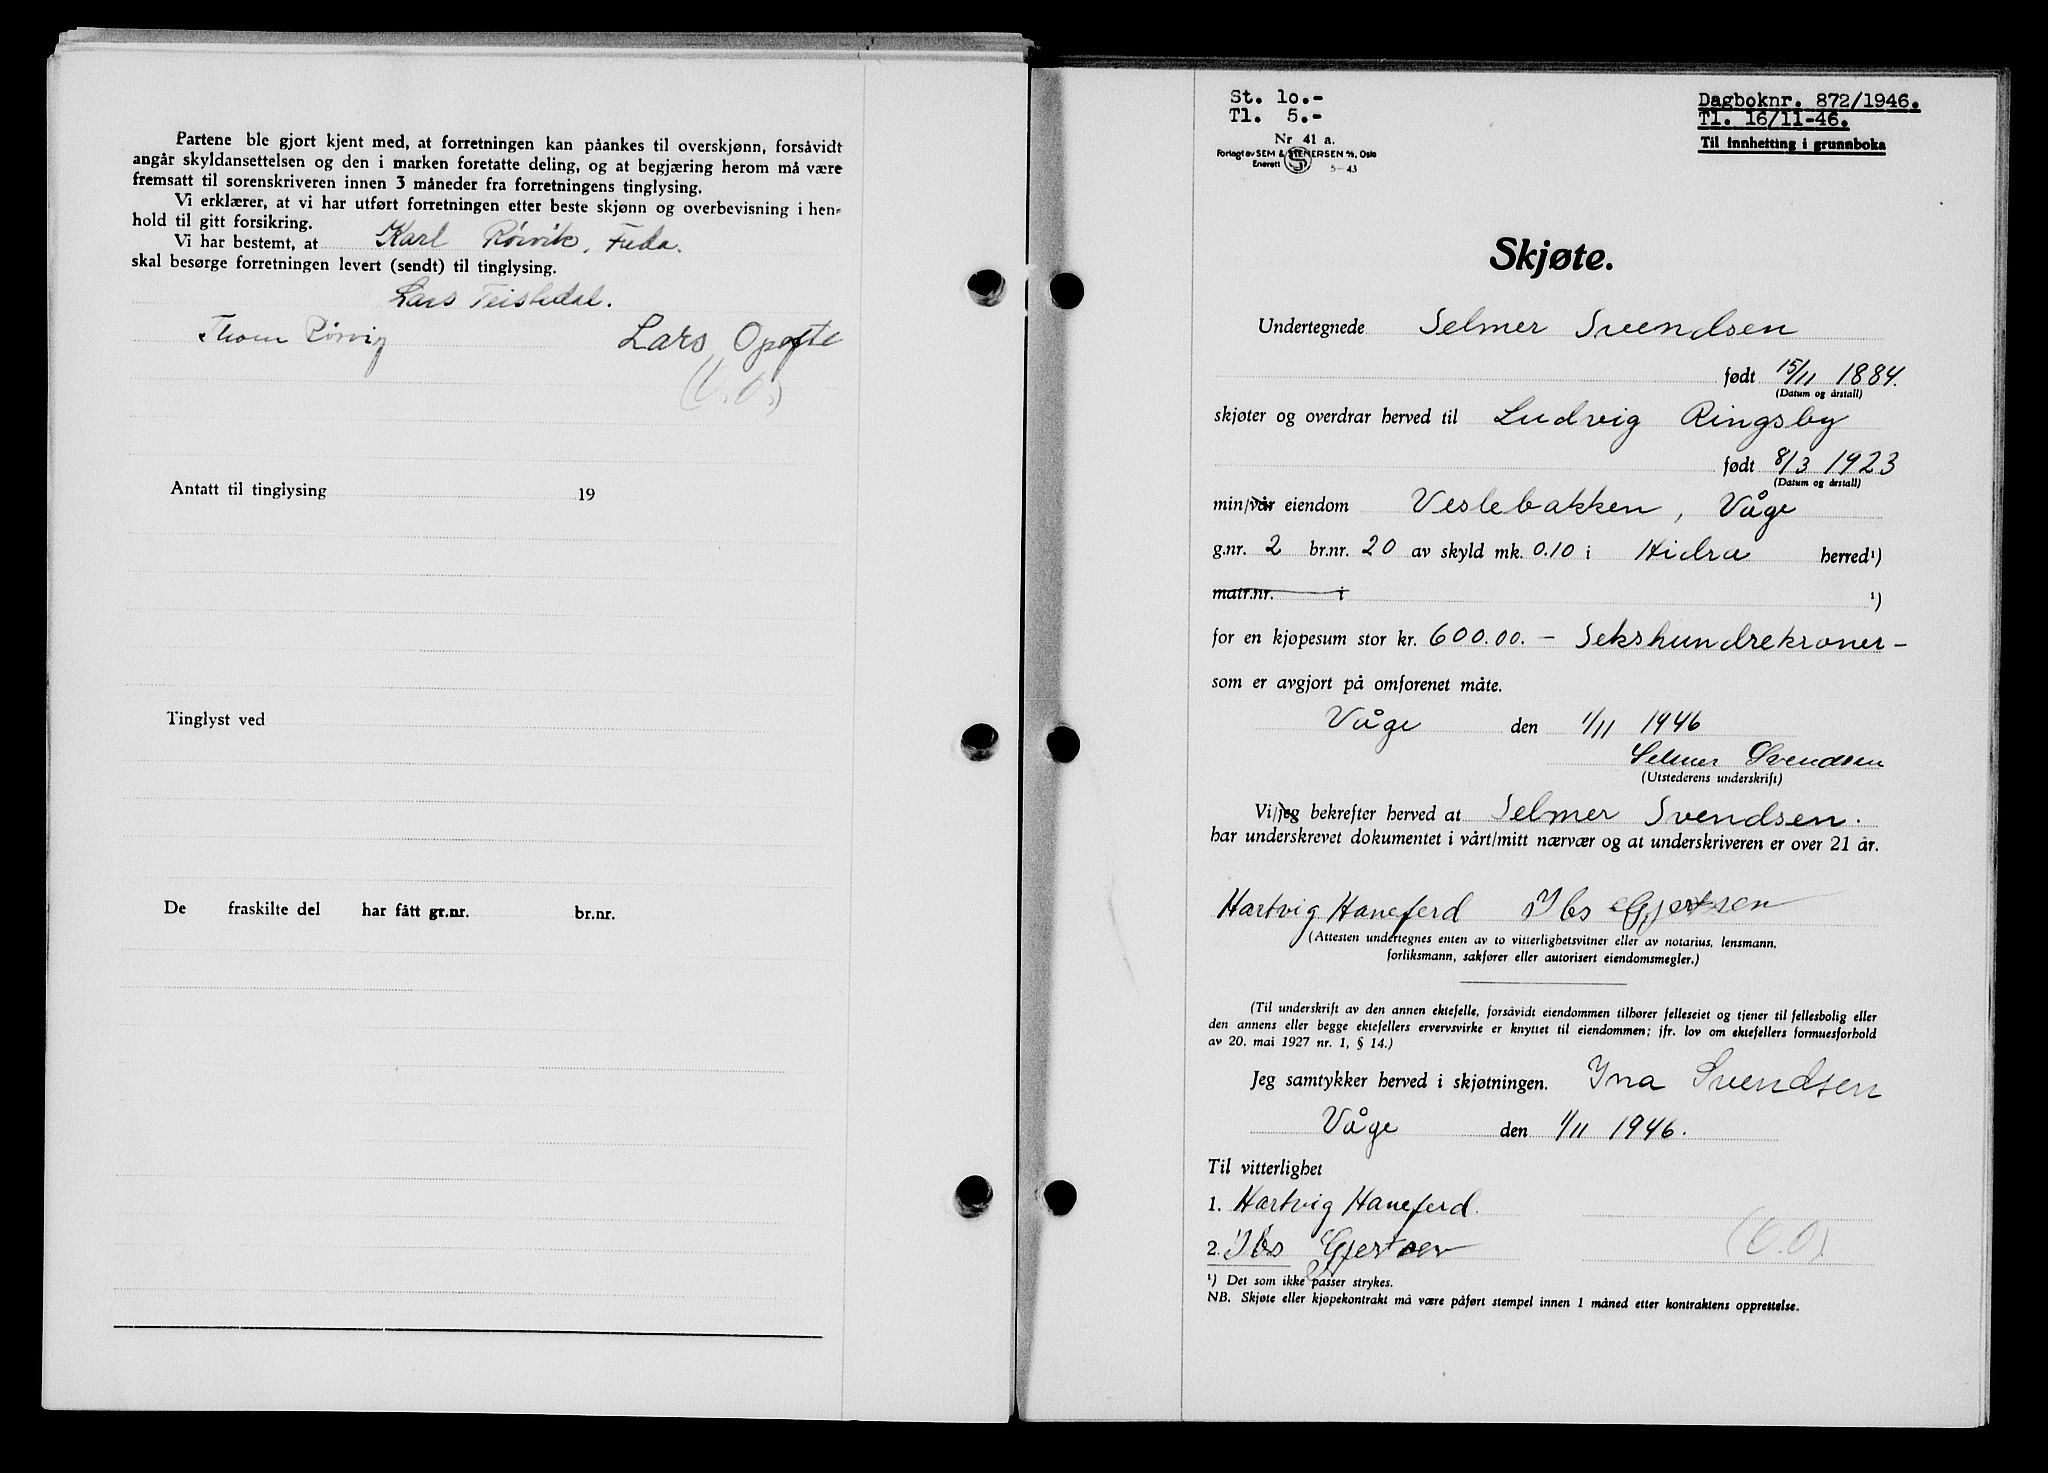 Partene ble gjort kjent med, at forretningen kan påankes til overskjønn, forsåvidt
angår skyldansettelsen og den i marken foretatte deling, og at begjæring herom må være
fremsatt til sorenskriveren innen 3 måneder fra forretningens tinglysing.
Vi erklærer, at vi har utført forretningen etter beste skjønn og overbevisning i hen-
hold til gitt forsikring.
Vi har bestemt, at Karl Rørvik, Feda.
skal besørge forretningen levert (sendt) til tinglysing.
Lars Teistedal.
Thom Rørvig Lars Opofte
(V.O.)
Antatt til tinglysing 19
Tinglyst ved
De fraskilte del har fått gr.nr. br.nr.
St. 10.-
Tl. 5.-
Nr 41 a.
Forlagt av SEM & STENERSEN A/S, Oslo
Enerett S 5-43
Dagboknr. 872/1946.
Tl. 16/11-46.
Til innhetting i grunnboka
Skjøte.
Undertegnede Selmer Svendsen
født 15/11 1884.
(Datum og årstall)
skjøter og overdrar herved til Ludvig Ringsby
født 8/3 1923
(Datum og årstall)
min/vår eiendom Veslebakken, Våge
g.nr. 2 br.nr. 20 av skyld mk. 0.10 i Hidra herred¹)
matr.nr. i ¹)
for en kjøpesum stor kr. 600.00. - Sekshundrekroner -
som er avgjort på omforenet måte.
Våge den 1/11 1946
Selmer Svendsen
(Utstederens underskrift)
Vi/jeg bekrefter herved at Selmer Svendsen.
har underskrevet dokumentet i vårt/mitt nærvær og at underskriveren er over 21 år.
Hartvig Haneferd Ibs Gjertsen
(Attesten undertegnes enten av to vitterlighetsvitner eller av notarius, lensmann,
forliksmann, sakfører eller autorisert eiendomsmegler.)
(Til underskrift av den annen ektefelle, forsåvidt eiendommen tilhører felleseiet og tjener til fellesbolig eller
den annens eller begge ektefellers ervervsvirke er knyttet til eiendommen; jfr. lov om ektefellers formuesforhold
av 20. mai 1927 nr. 1, § 14.)
Jeg samtykker herved i skjøtningen. Yna Svendsen
Våge den 1/11 1946.
Til vitterlighet
1. Hartvig Haneferd.
2. Ibs Gjertsen
(V.O).
¹) Det som ikke passer strykes.
NB. Skjøte eller kjøpekontrakt må være påført stempel innen 1 måned etter kontraktens opprettelse.